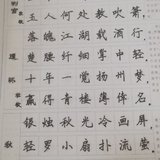 判官
玉人何处教吹箫。
落魄江湖载酒行,
楚腰纤细掌中轻。
遣怀
十年一觉扬州梦,
赢得青楼薄倖名。
银烛秋光冷画屏,
轻罗小扇扑流萤